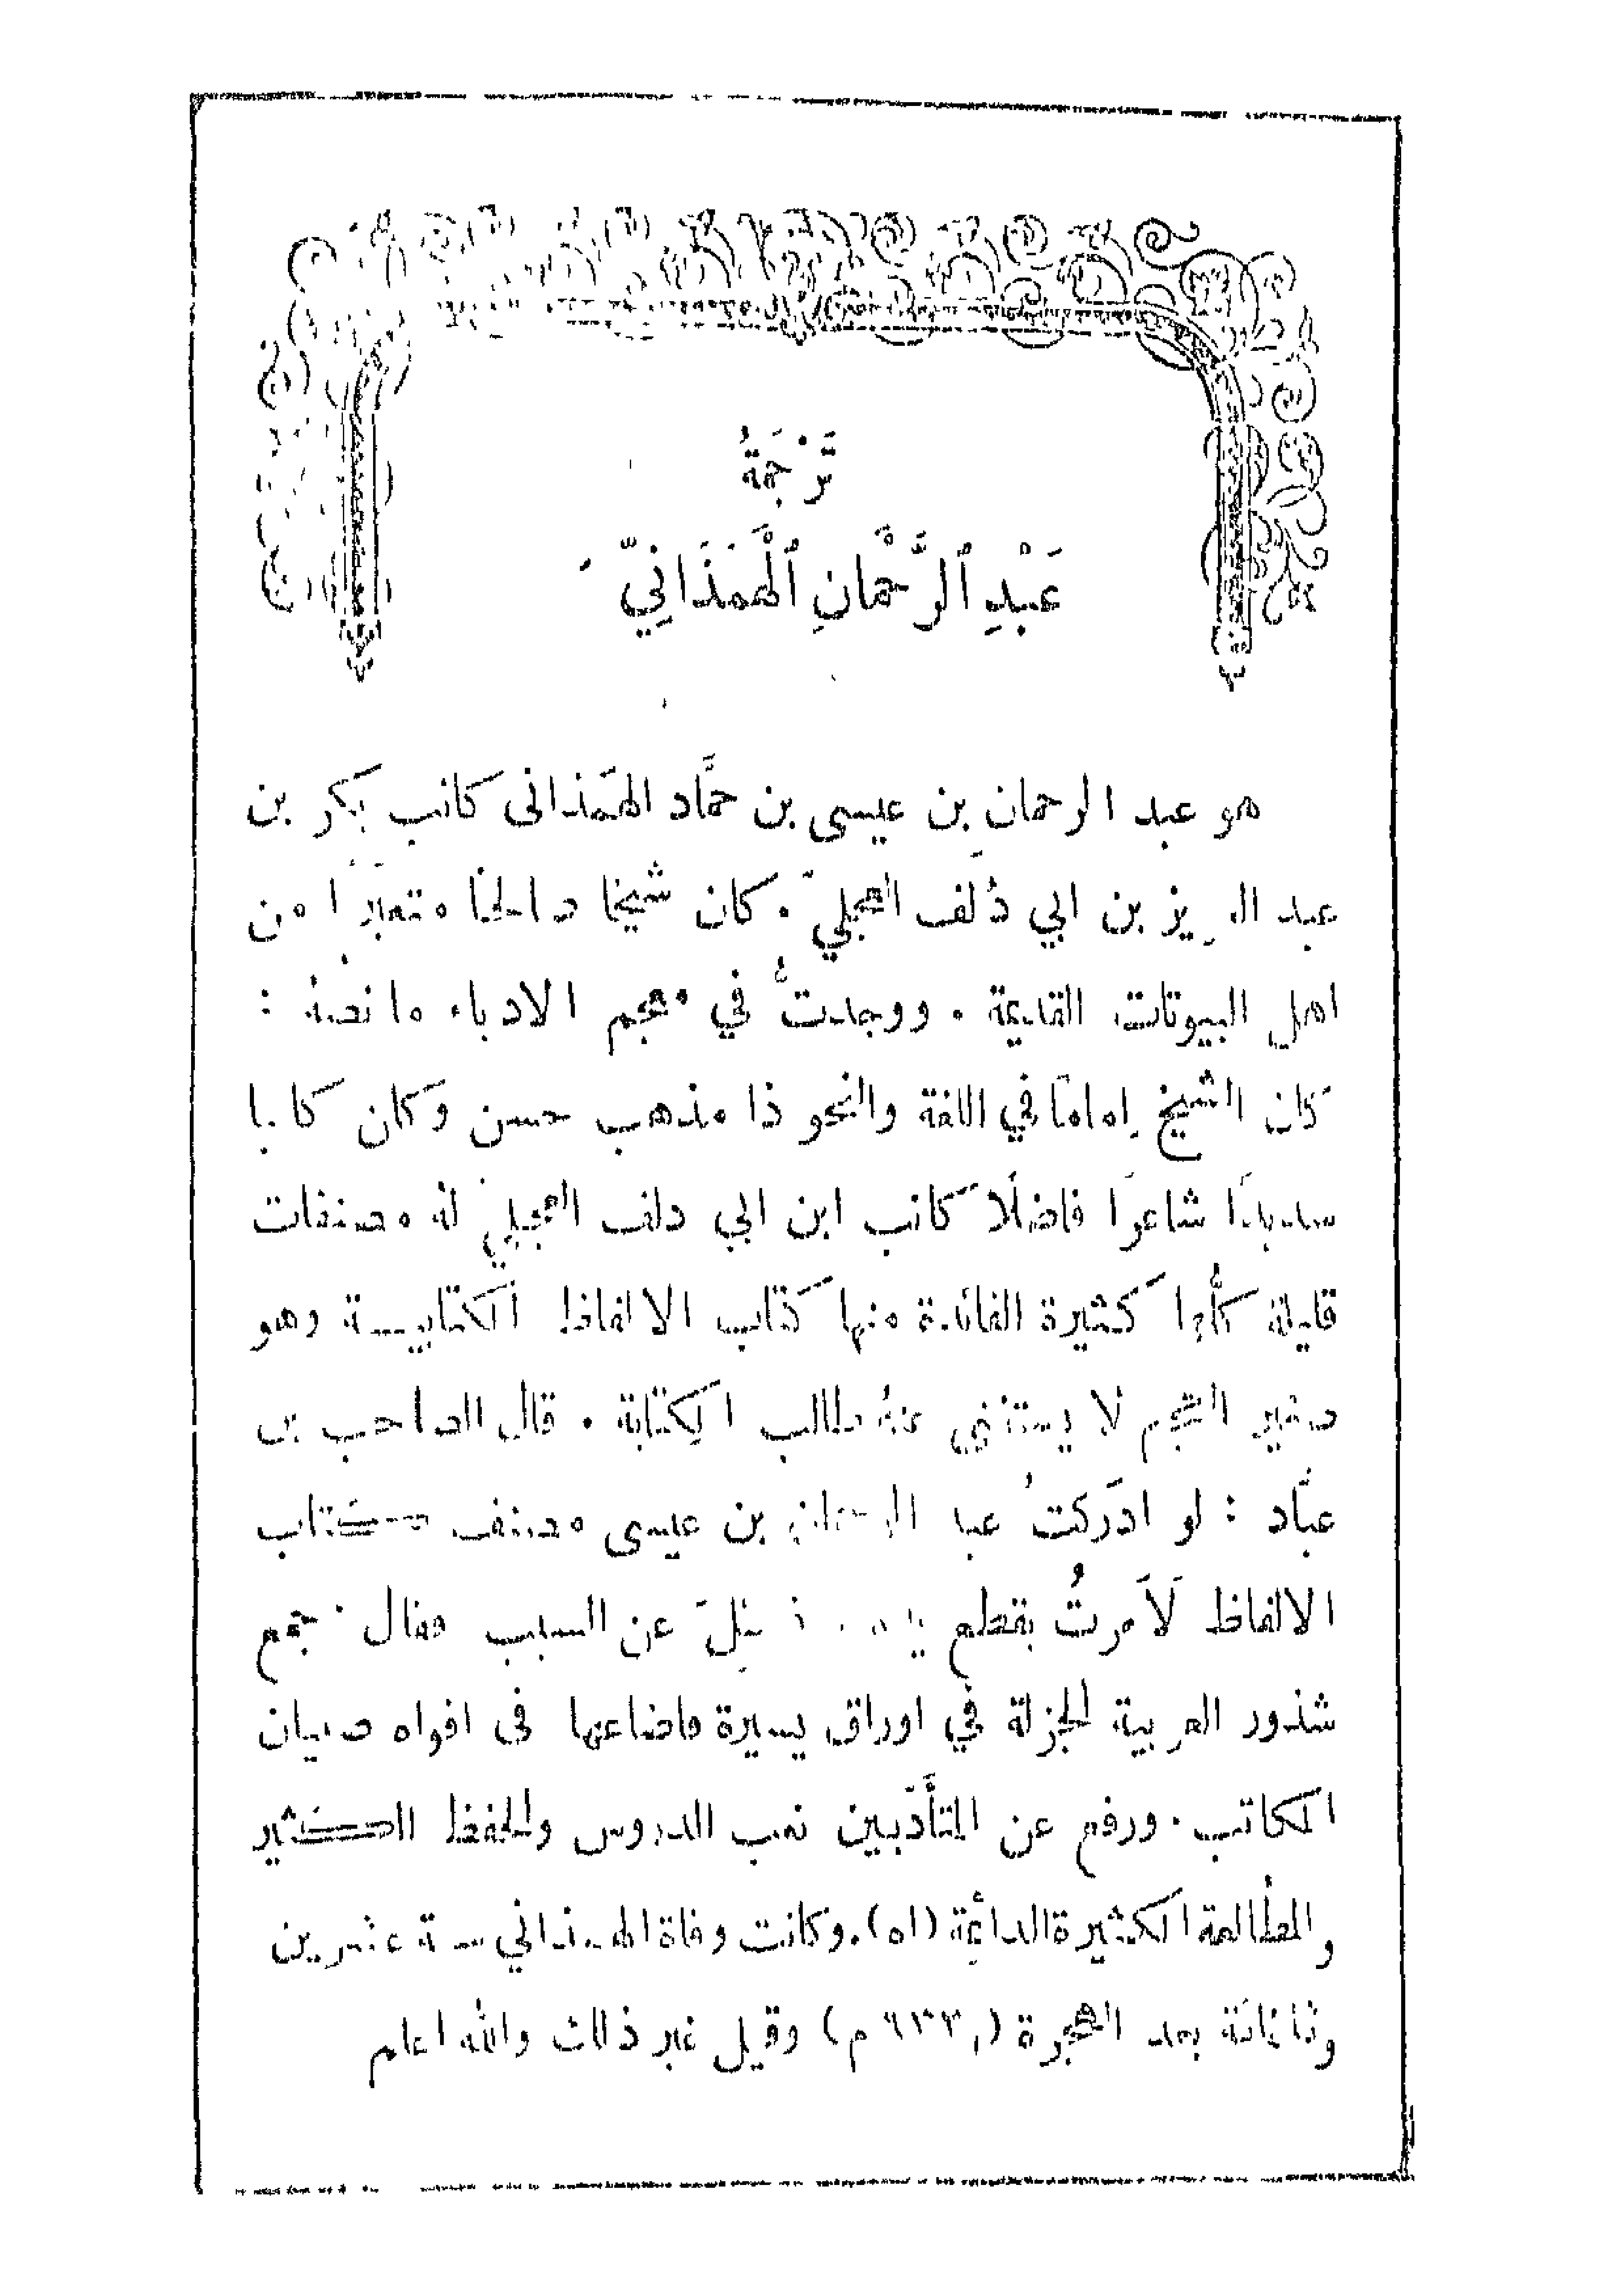 تَرْجَمَةُ
عَبْدِ ٱلرَّحْمَانِ ٱلْهَمَذَانِيِّ
هو عبد الرحمان بن عيسى بن حمَّاد الهَمَذانى كاتب بكر بن
عبد العزيز بن ابي دُلَف العجليّ. كان شيخا صالحًا متعبّدًا من
اهل البيوتات القديمة. ووجدتُ في معجم الادباء ما نصهُ:
كان الشيخ إمامًا في اللغة والنحو ذا مذهب حسن وكان كاتبا
سديدًا شاعرًا فاضلًا كاتب ابن ابي دلف العجلي له مصنفات
قليلة كلُّها كثيرة الفائدة منها كتاب الالفاظ الكتابيـة وهو
صغير الحجم لا يستغني عنهُ طالب الكتابة. قال الصاحب بن
عبَّاد: لو ادرَكتُ عبد الرحمان بن عيسى مصنف كتاب
الالفاظ لَأَمرتُ بقطع يده. فسُئِلَ عن السبب فقال جمع
شذور العربية الجزلة في اوراق يسيرة فاضاعها فى افواه صبيان
المكاتب. ورفع عن المتأَدّبين تعب الدروس والحفظ الكثير
والمطالعة الكثيرة الدائمة (اه). وكانت وفاة الهمذاني سنة عشرين
وثلاثمائة بعد الهجرة (٩٣٣ م) وقيل غير ذلك والله اعلم